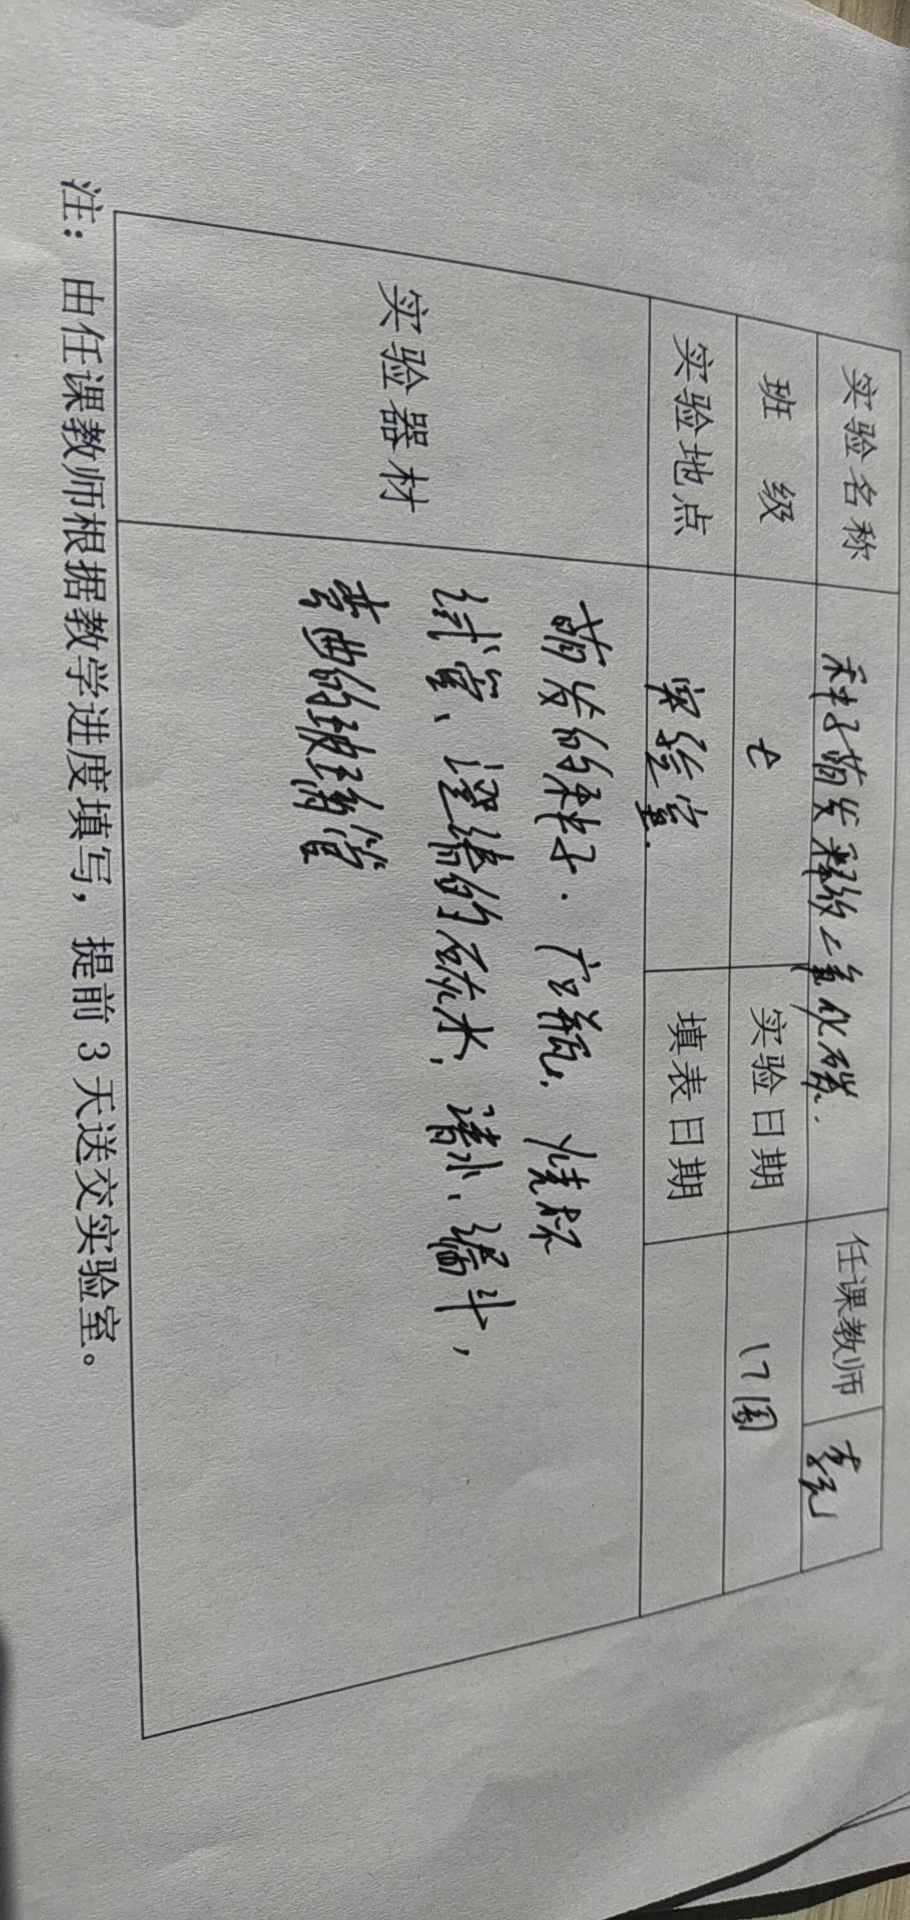 实验名称 种子萌发释放二氧化碳. 任课教师 李元
班 级 七 实验日期 17周
实验地点 实验室. 填表日期
实验器材 萌发的种子. 广口瓶, 烧杯
试管、澄清的石灰水, 清水、漏斗,
弯曲的玻璃管
注：由任课教师根据教学进度填写，提前 3 天送交实验室。